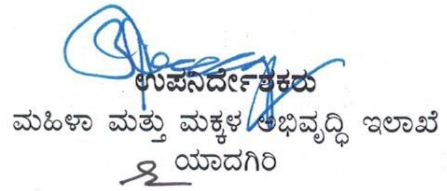 ಉಪನಿರ್ದೇಶಕರು
ಮಹಿಳಾ ಮತ್ತು ಮಕ್ಕಳ ಅಭಿವೃದ್ಧಿ ಇಲಾಖೆ
ಯಾದಗಿರಿ